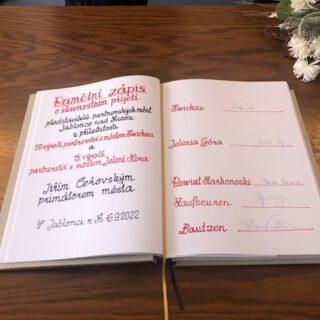 Pamětní zápis
o slavnostním přijetí
představitelů partnerských měst
Jablonce nad Nisou
u příležitosti
50. výročí partnerství s městem Zwickau
a
15. výročí
partnerství s městem Jelení Hora
Jiřím Čeřovským
primátorem města
V Jablonci n. N. 16.9.2022
Zwickau
Jelenia Góra
Powiat Karkonoski
Kaufbeuren
Bautzen